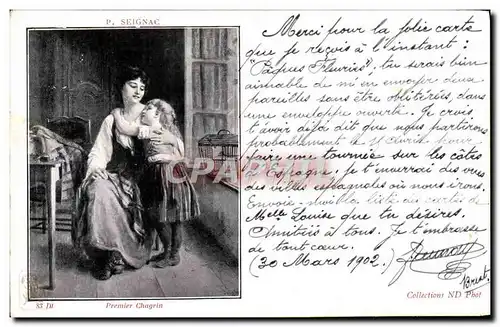 P. SEIGNAC
Merci pour la jolie carte
que je reçois à l'instant :
"Pâques Fleuries"; tu serais bien
aimable de m'en envoyer deux
pareilles sans être oblitérées, dans
une enveloppe ouverte. Je crois
t'avoir déjà dit que nous partirons
probablement le 15 Avril pour
faire une tournée sur les côtes
d'Espagne, je t'enverrai des vues
des villes espagnoles où nous irons.
Envoie-moi la liste des cartes de
Melle Louise que tu désires.
Amitiés à tous. Je t'embrasse
de tout cœur.
(30 Mars 1902.)
Brest.
83 DI
Premier Chagrin
Collections ND Phot